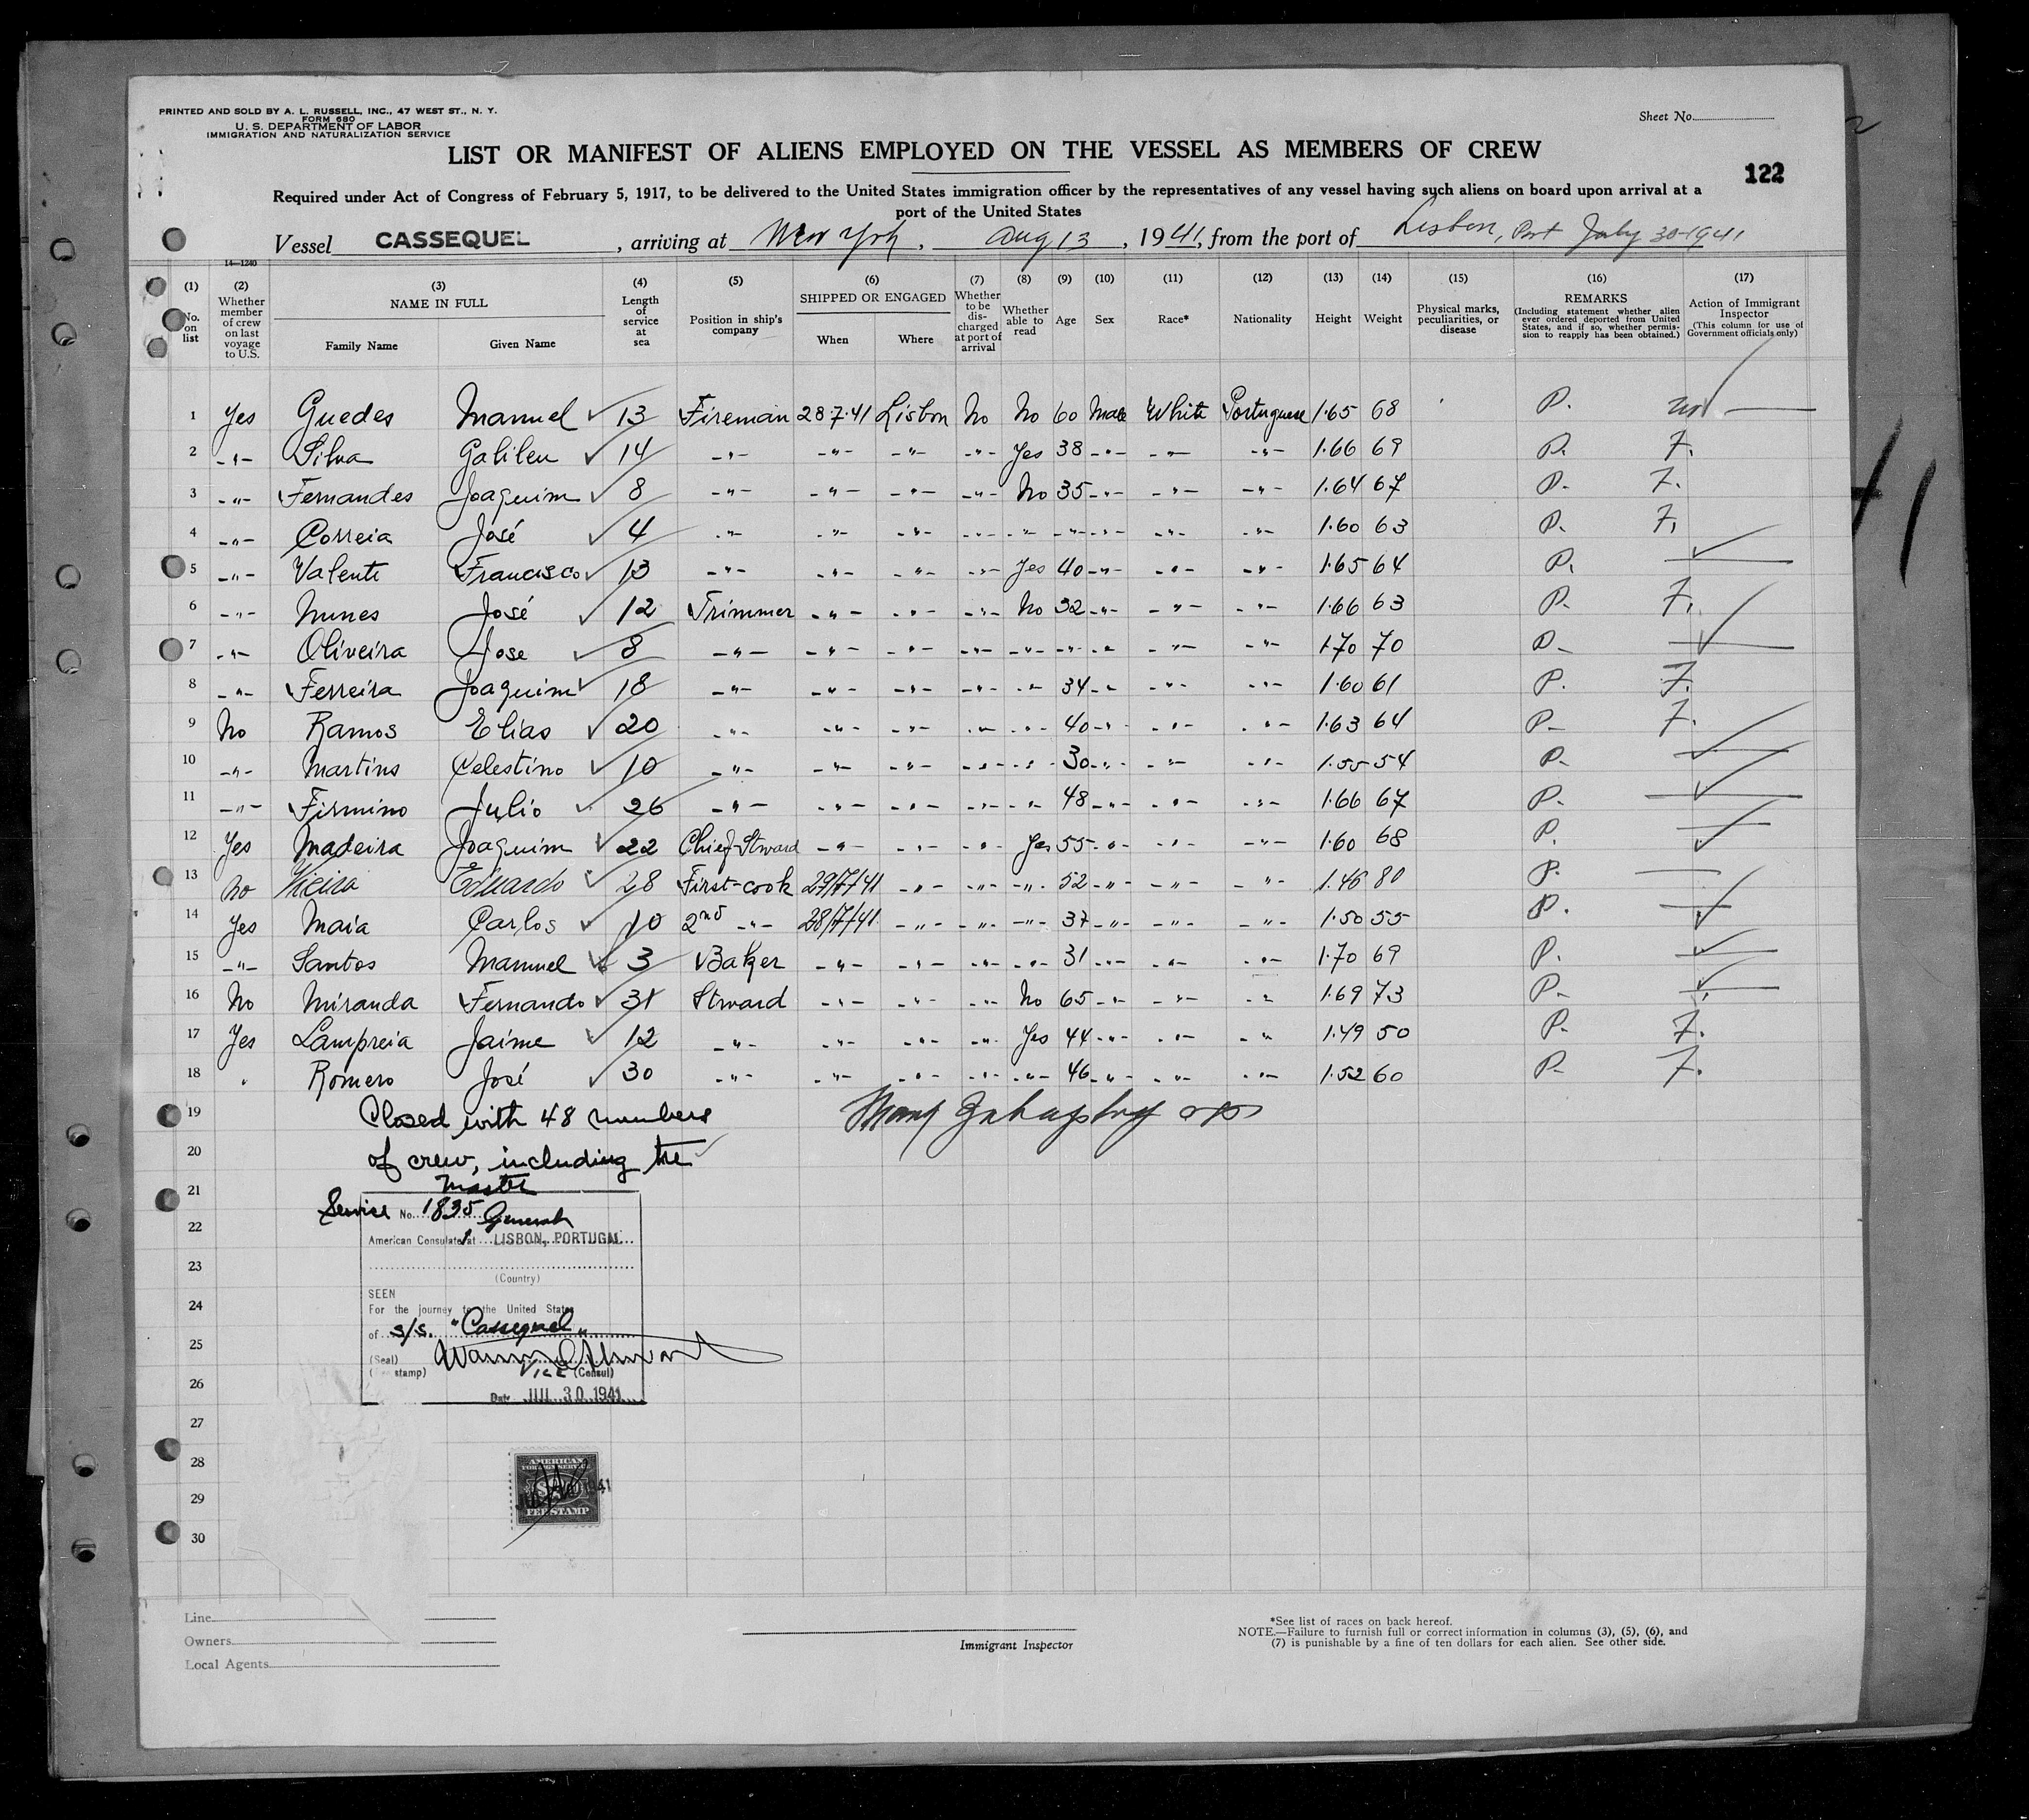 PRINTED AND SOLD BY A. L. RUSSELL, INC., 47 WEST ST., N. Y.
FORM 680
U. S. DEPARTMENT OF LABOR
IMMIGRATION AND NATURALIZATION SERVICE
Sheet No.
LIST OR MANIFEST OF ALIENS EMPLOYED ON THE VESSEL AS MEMBERS OF CREW
122
Required under Act of Congress of February 5, 1917, to be delivered to the United States immigration officer by the representatives of any vessel having such aliens on board upon arrival at a
port of the United States
Vessel CASSEQUEL, arriving at New York, Aug 13, 1941, from the port of Lisbon, Port July 30-1941
14—1240
(1) (2) (3) (4) (5) (6) (7) (8) (9) (10) (11) (12) (13) (14) (15) (16) (17)
No. on list
Whether member of crew on last voyage to U.S.
NAME IN FULL
Family Name Given Name
Length of service at sea
Position in ship's company
SHIPPED OR ENGAGED
When Where
Whether to be discharged at port of arrival
Whether able to read
Age Sex Race* Nationality Height Weight
Physical marks, peculiarities, or disease
REMARKS
(Including statement whether alien ever ordered deported from United States, and if so, whether permission to reapply has been obtained.)
Action of Immigrant Inspector
(This column for use of Government officials only)
1 Yes Guedes Manuel 13 Fireman 28·7·41 Lisbon No No 60 Male White Portuguese 1·65 68 P.
2 -"- Silva Galileu 14 -"- -"- -"- -"- Yes 38 -"- -"- -"- 1·66 69 P. F.
3 -"- Fernandes Joaquim 8 -"- -"- -"- -"- No 35 -"- -"- -"- 1·64 67 P- F.
4 -"- Correia José 4 -"- -"- -"- -"- -"- -"- -"- -"- -"- 1·60 63 P- F.
5 -"- Valente Francisco 13 -"- -"- -"- -"- Yes 40 -"- -"- -"- 1·65 64 P.
6 -"- Nunes José 12 Trimmer -"- -"- -"- No 32 -"- -"- -"- 1·66 63 P- F.
7 -"- Oliveira Jose 8 -"- -"- -"- -"- -"- -"- -"- -"- -"- 1·70 70 P-
8 -"- Ferreira Joaquim 18 -"- -"- -"- -"- -"- 34 -"- -"- -"- 1·60 61 P. F.
9 No Ramos Elias 20 -"- -"- -"- -"- -"- 40 -"- -"- -"- 1·63 64 P- F.
10 -"- Martins Celestino 10 -"- -"- -"- -"- -"- 30 -"- -"- -"- 1·55 54 P-
11 -"- Firmino Julio 26 -"- -"- -"- -"- -"- 48 -"- -"- -"- 1·66 67 P-
12 Yes Madeira Joaquim 22 Chief-Stward -"- -"- -"- Yes 55 -"- -"- -"- 1·60 68 P.
13 No Vieira Eduardo 28 First-cook 29/7/41 -"- -"- -"- 52 -"- -"- -"- 1·46 80 P-
14 Yes Maia Carlos 10 2nd -"- 28/7/41 -"- -"- -"- 37 -"- -"- -"- 1·50 55 P.
15 -"- Santos Manuel 3 Baker -"- -"- -"- -"- 31 -"- -"- -"- 1·70 69 P.
16 No Miranda Fernando 31 Stward -"- -"- -"- No 65 -"- -"- -"- 1·69 73 P-
17 Yes Lampreia Jaime 12 -"- -"- -"- -"- Yes 44 -"- -"- -"- 1·49 50 P- F.
18 " Romero José 30 -"- -"- -"- -"- -"- 46 -"- -"- -"- 1·52 60 P- F.
19 Closed with 48 members
20 of crew, including the
21 Master
Service No. 1835 General
22 American Consulate at LISBON, PORTUGAL
23
(Country)
SEEN
24 For the journey to the United States
of s/s. "Cassequel"
25
(Seal)
( stamp) Vice (Consul)
26
Date JUL 30 1941
27
28
AMERICAN
FOREIGN SERVICE
29 JUL 30 1941
FEE STAMP
30
Line
Owners
Local Agents
Immigrant Inspector
*See list of races on back hereof.
NOTE.—Failure to furnish full or correct information in columns (3), (5), (6), and
(7) is punishable by a fine of ten dollars for each alien. See other side.